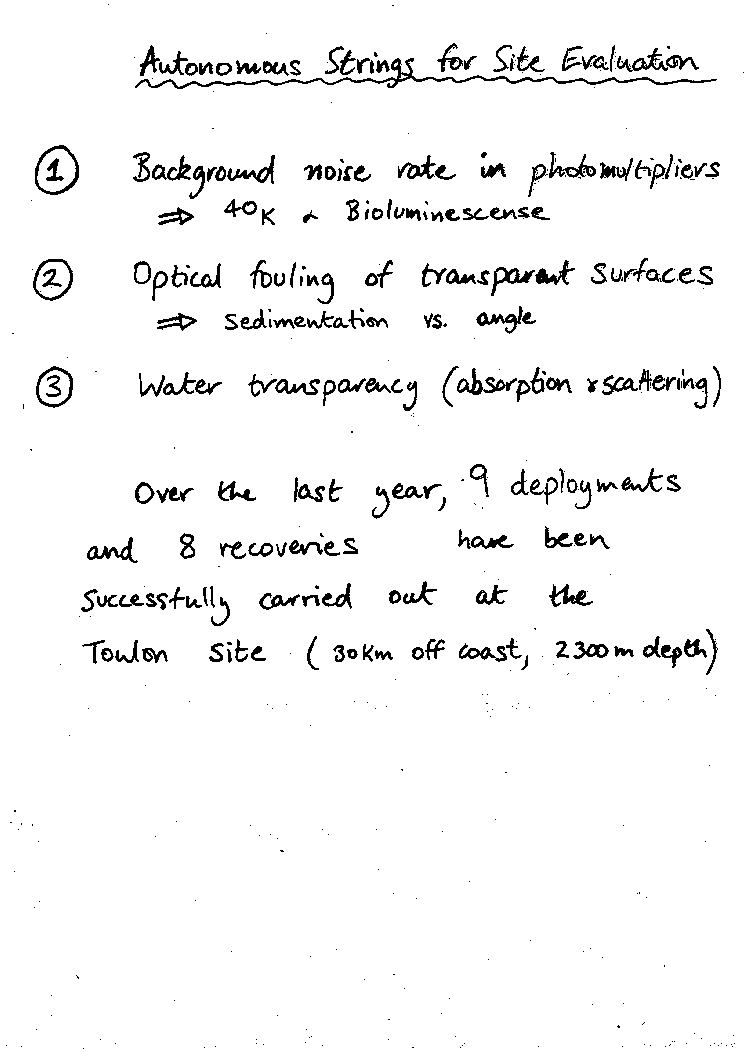 Autonomous Strings for Site Evaluation
① Background noise rate in photomultipliers
⇒ ⁴⁰K & Bioluminescense
② Optical fouling of transparent surfaces
⇒ Sedimentation vs. angle
③ Water transparency (absorption & scattering)
Over the last year, 9 deployments
and 8 recoveries have been
successfully carried out at the
Toulon Site (30km off coast, 2300m depth)